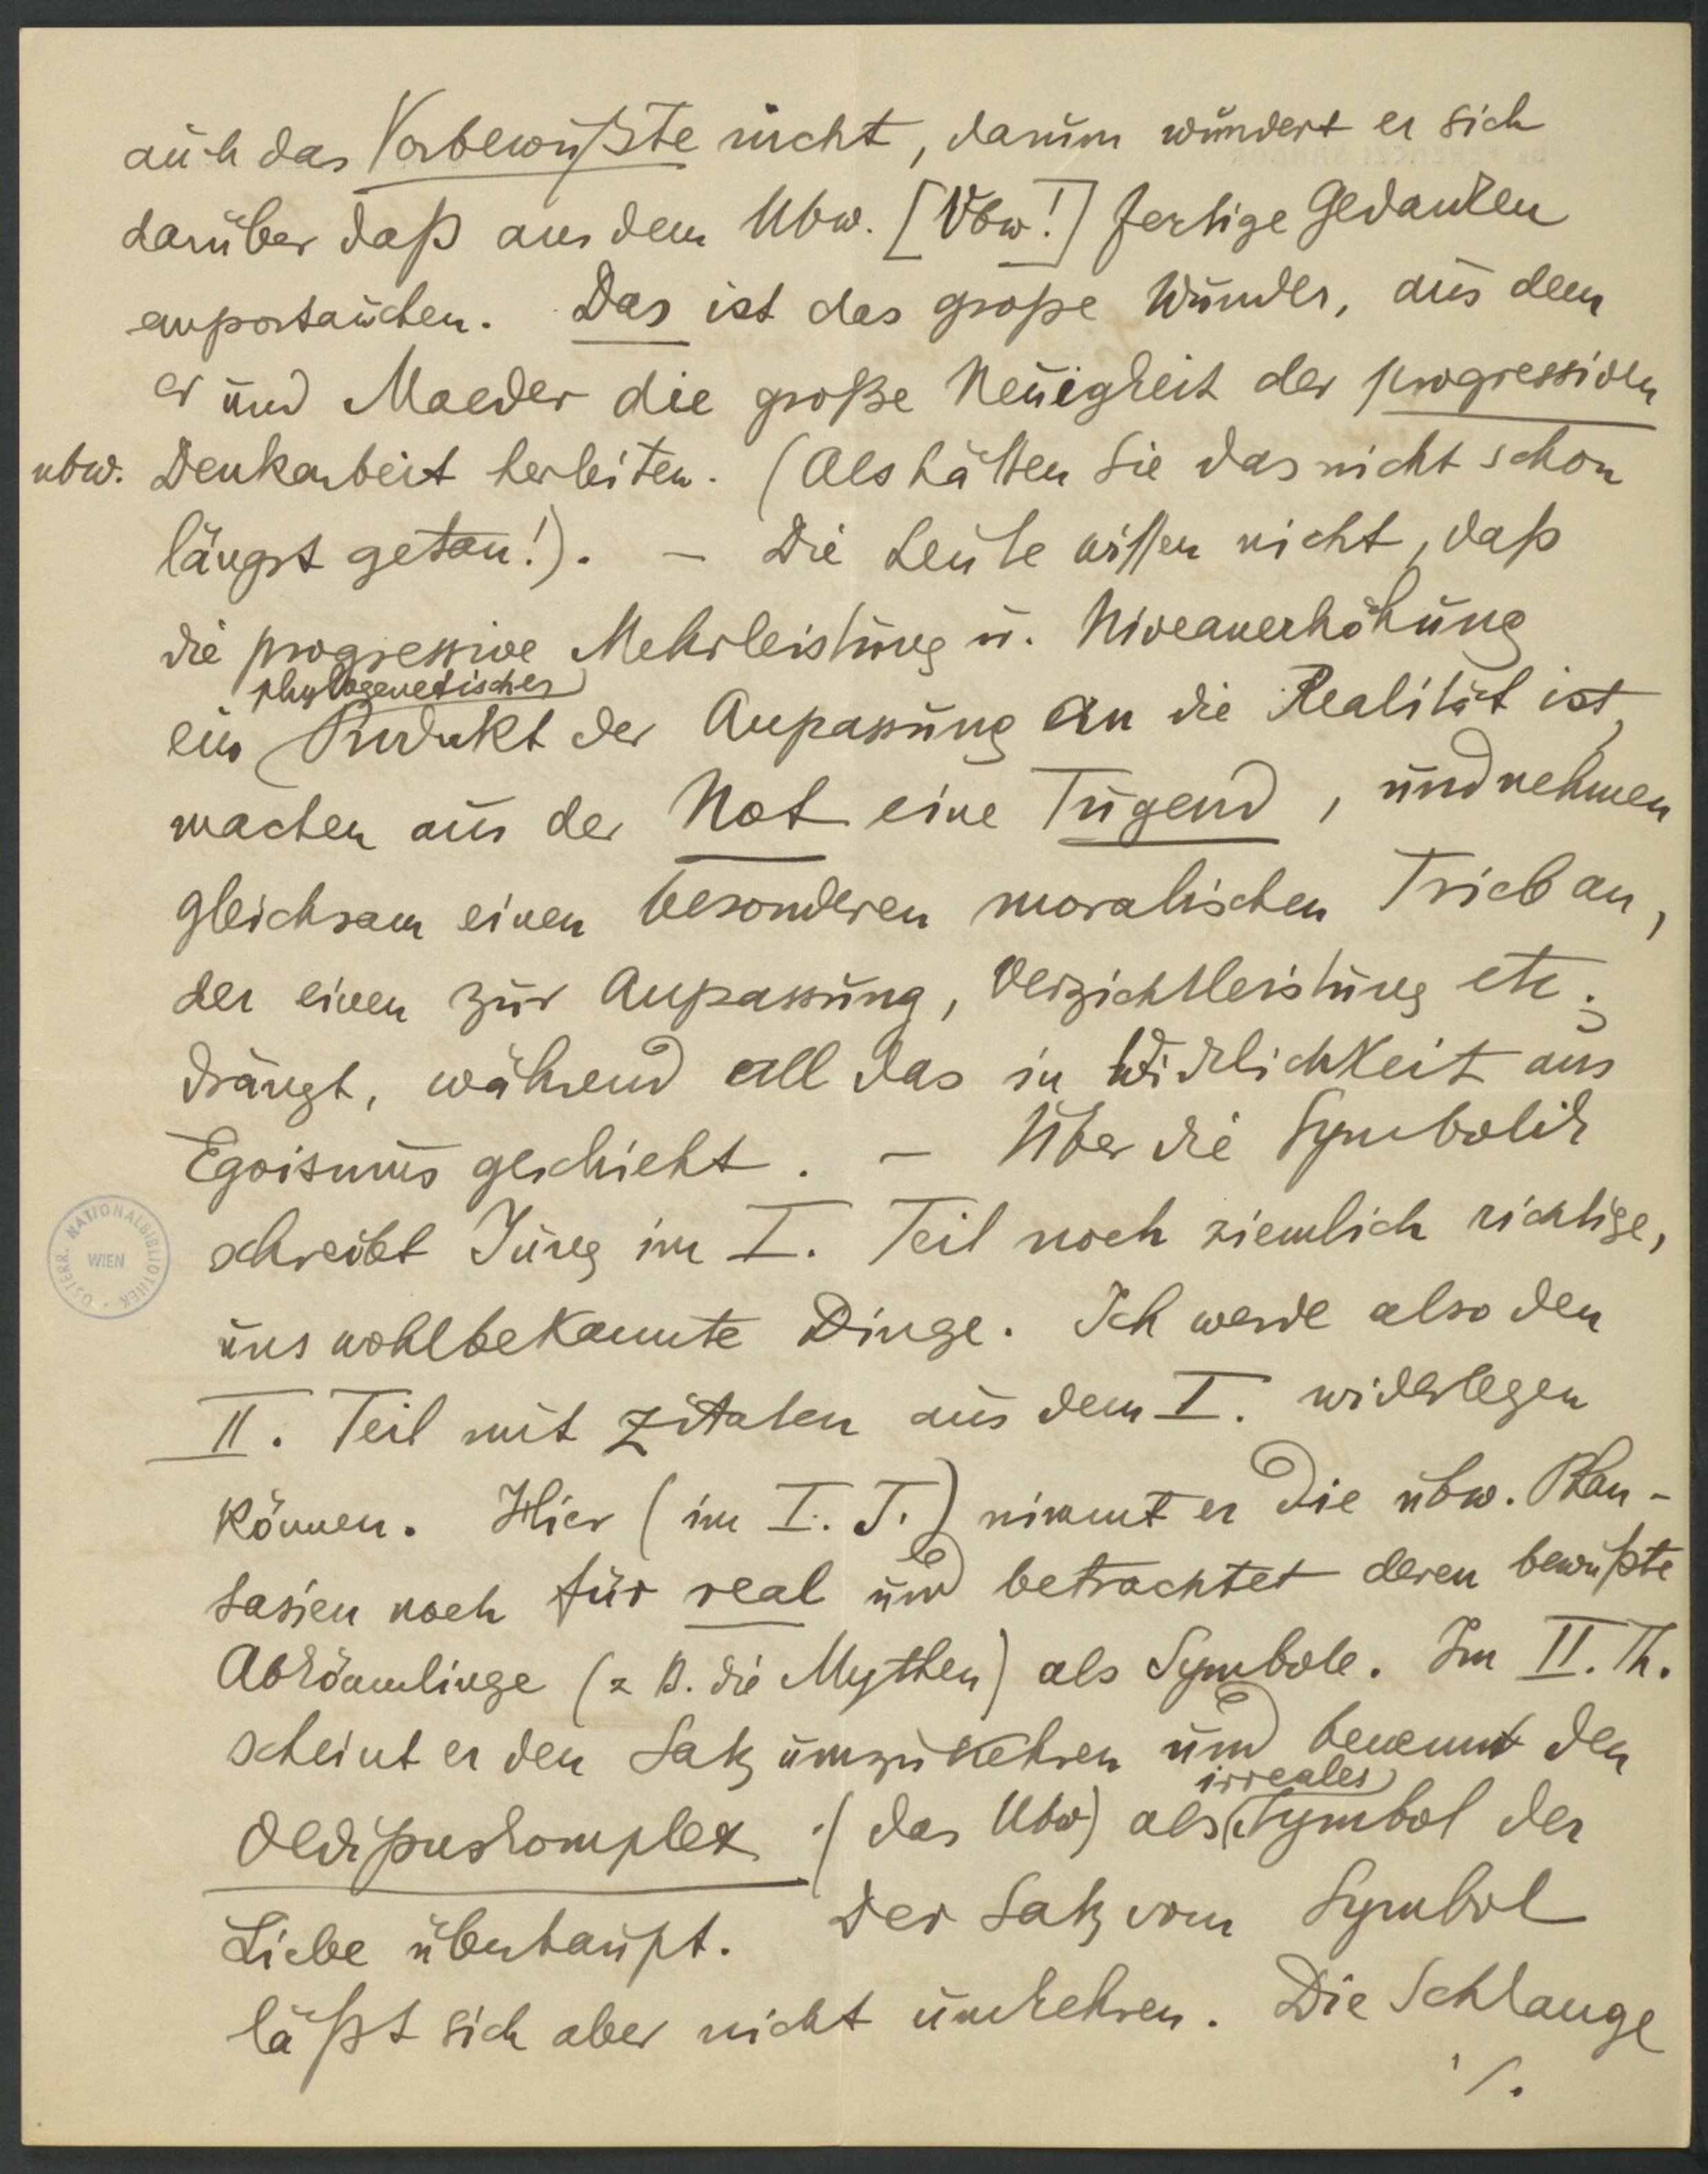 auch das Vorbewußte nicht, darum wundert er sich
darüber daß aus dem Ubw. [Vbw!] fertige Gedanken
emportauchen. Das ist das große Wunder, aus dem
er und Maeder die große Neuigkeit der progressiven
ubw. Denkarbeit herleiten. (Als hätten Sie das nicht schon
längst getan!). – Die Leute wissen nicht, daß
die progressive Mehrleistung u. Niveauerhöhung
phylogenetisches
ein Produkt der Anpassung an die Realität ist,
machen aus der Not eine Tugend, und nehmen
gleichsam einen besonderen moralischen Trieb an,
der einen zur Anpassung, Verzichtleistung etc.
drängt, während all das in Wirklichkeit aus
Egoismus geschieht. – Über die Symbolik
schreibt Jung im I. Teil noch ziemlich richtige,
uns wohlbekannte Dinge. Ich werde also den
II. Teil mit Zitaten aus dem I. widerlegen
können. Hier (im I. T.) nimmt er die ubw. Phan-
tasien noch für real und betrachtet deren bewußte
Abkömmlinge (z B. die Mythen) als Symbole. Im II. Th.
scheint er den Satz umzukehren und benennt den
irreales
Oedipuskomplex (das Ubw) als Symbol der
Liebe überhaupt. Der Satz vom Symbol
läßt sich aber nicht umkehren. Die Schlange
./.
ÖSTERR. NATIONALBIBLIOTHEK
WIEN